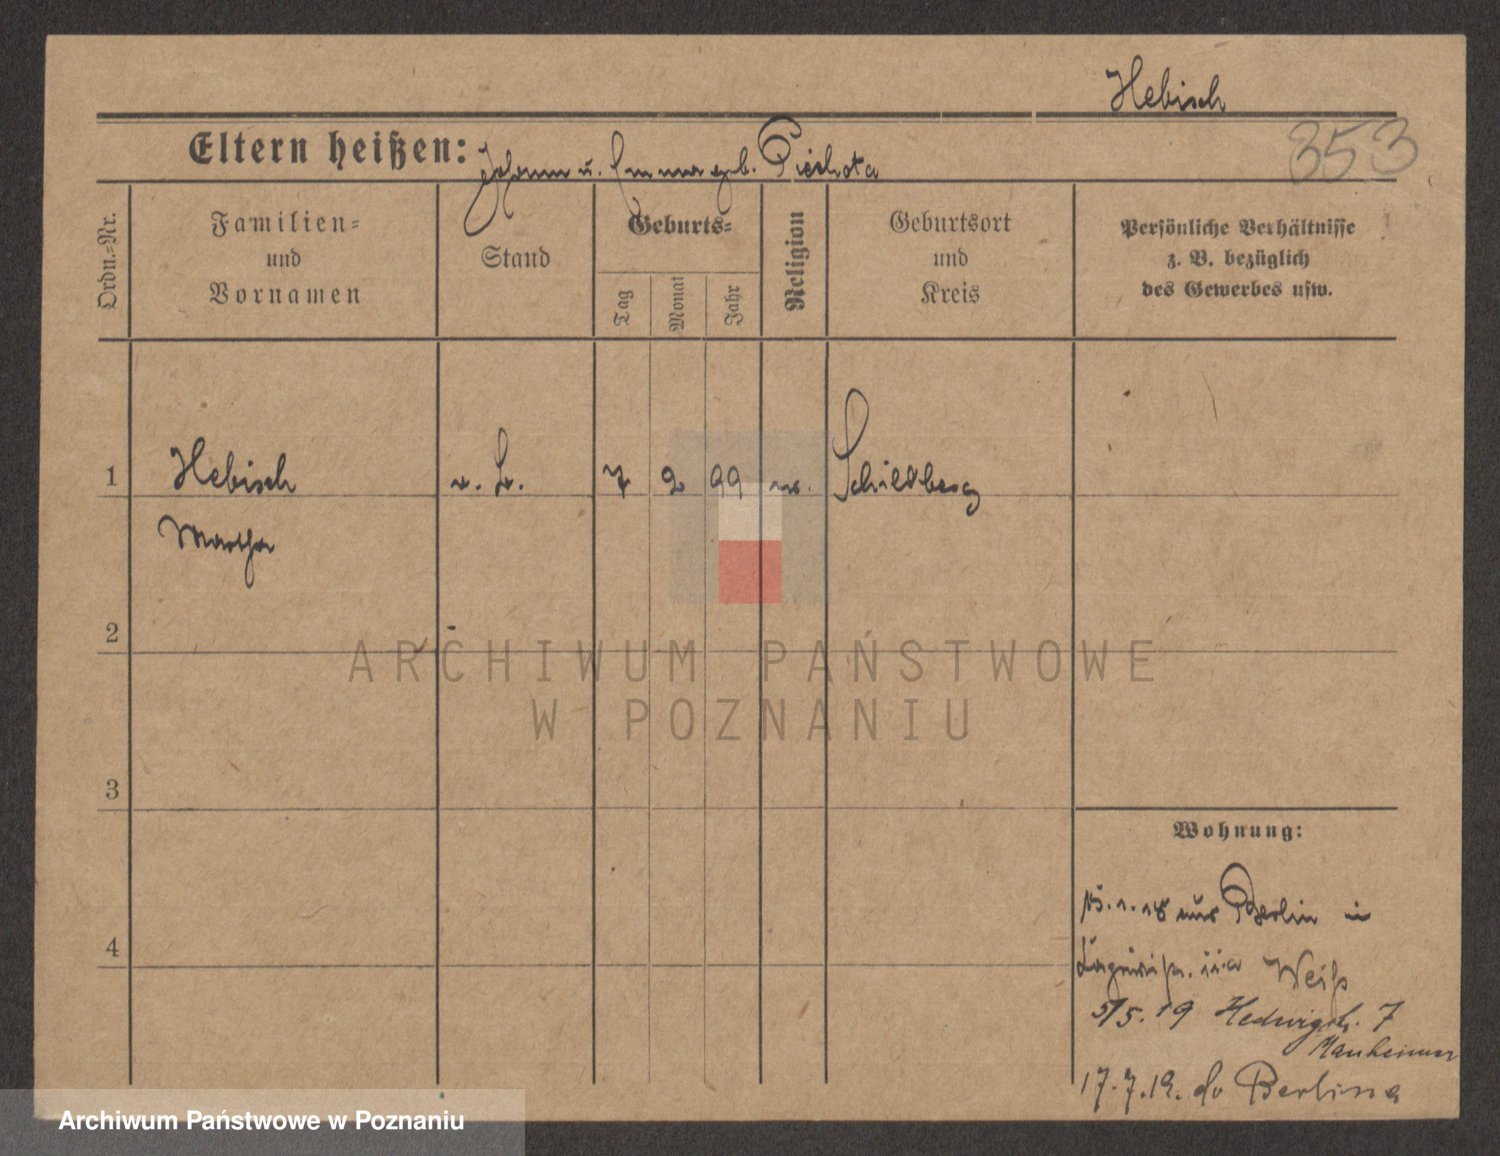 Hebisch
353
Eltern heißen: Johann u. Emma geb. Piechota
Ordn.=Nr.
Familien=
und
Vornamen
Stand
Geburts=
Tag
Monat
Jahr
Religion
Geburtsort
und
Kreis
Persönliche Verhältnisse
z. B. bezüglich
des Gewerbes usw.
1
Hebisch
7
2
99
Schildberg
Martha
2
ARCHIWUM PAŃSTWOWE
W POZNANIU
3
Wohnung:
4
15.1.18 aus Berlin in
Weiß
5/5.19 Hedwigstr. 7
Manheimer
17.7.19. do Berlina
Archiwum Państwowe w Poznaniu